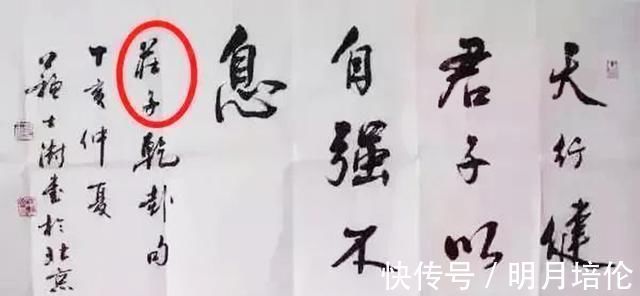 天行健
君子以
自强不
息
莊子乾卦句
丁亥仲夏
士澍书於北京
快传号 / 明月培伦